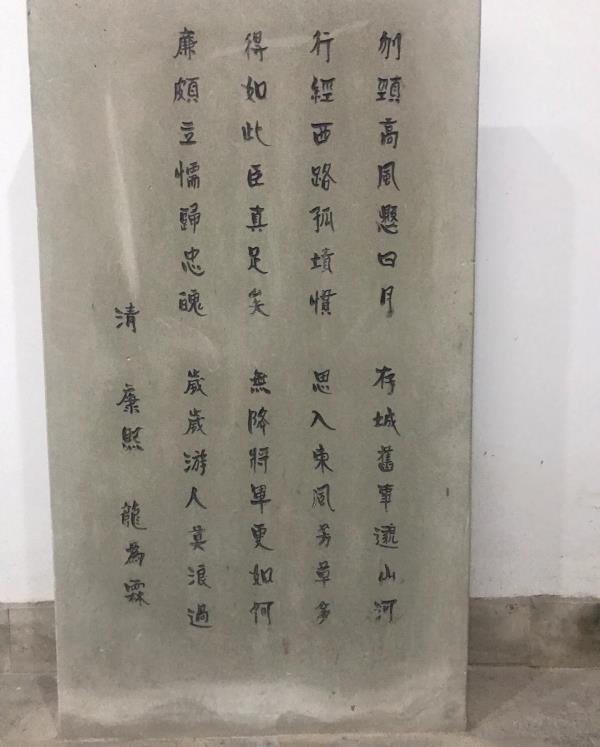 刎頸高風懸日月 存城舊事邈山河
行經西路孤墳慣 思入東風芳草多
得如此臣真足矣 無降將軍更如何
廉頗立懦歸忠魄 歲歲游人莫浪過
清 康熙 龍為霖